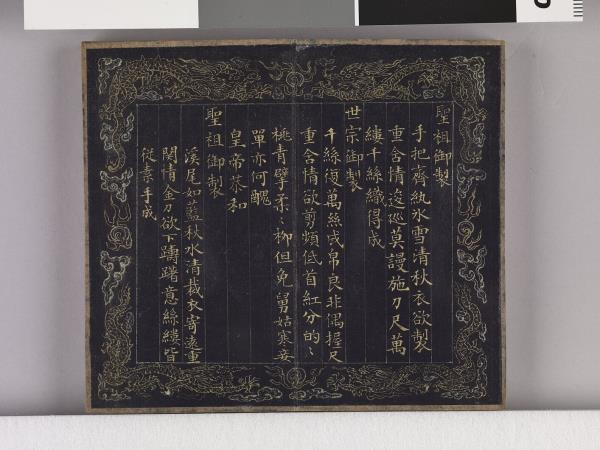 聖祖御製
手把齊紈氷雪清秋衣欲製
重含情逡廵莫謾施刀尺萬
縷千絲織得成
世宗御製
千絲復萬絲成帛良非偶握尺
重含情欲剪頻低首紅分的〻
桃青擘柔〻柳但免舅姑寒妾
單亦何醜
皇帝恭和
聖祖御製
溪尾如藍秋水清裁衣寄遠重
関情金刀欲下躊躇意絲縷皆
從素手成